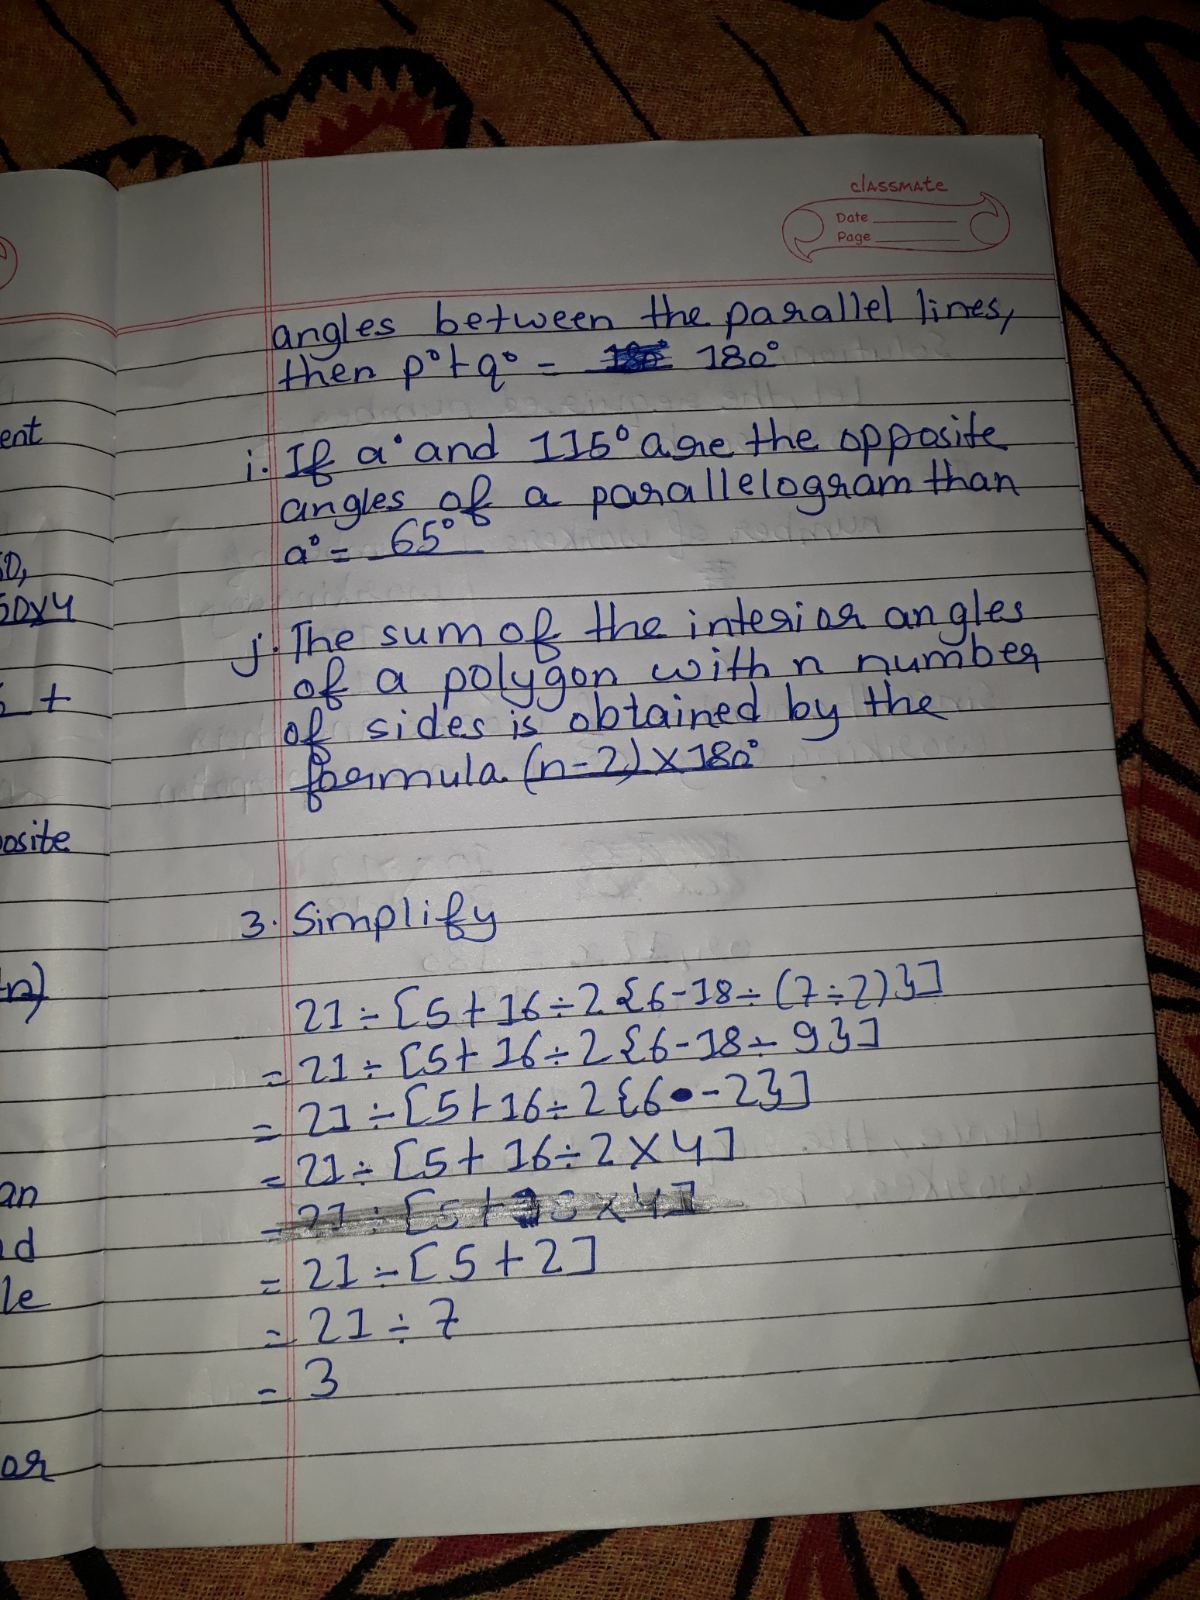 classmate
Date
Page
angles between the parallel lines,
then p°+q° = 180°
i. If a° and 115° are the opposite
angles of a parallelogram than
a° = 65°
j. The sum of the interior angles
of a polygon with n number
of sides is obtained by the
formula (n-2)×180°
3. Simplify
21÷[5+16÷2{6-18÷(7÷2)}]
=21÷[5+16÷2{6-18÷9}]
=21÷[5+16÷2{6-2}]
=21÷[5+16÷2×4]
=21÷[5+2]
=21÷7
=3
ent
50×4
+
posite
an
le
or